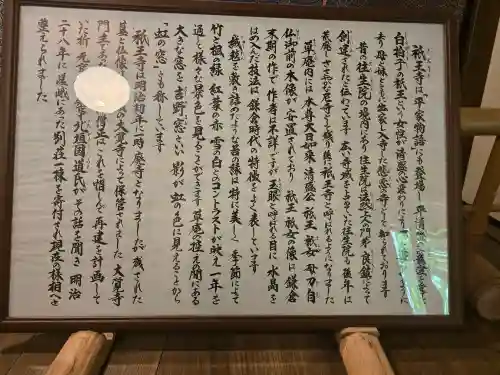 祇王寺は平家物語にも登場し 平清盛の
白拍子の祇王という女性が清盛の心変わりにより
より母と妹とともに出家し入寺した悲恋の寺として知られております
昔の往生院の境内であり往生院は法然上人門弟 良鎮によって
創建されたと伝わっています 広い寺域を占めていた往生院も後年は
荒廃しささやかな尼寺として残り後に祇王寺と呼ばれるようになりました
草庵内には 本尊大日如来 清盛公 祇王 祇女 母刀自
仏御前の木像が安置されており 祇王 祇女の像は鎌倉
末期の作で 作者は不詳ですが玉眼と呼ばれる目に 水晶を
はめ入れた技法は鎌倉時代の特徴をよく表しています
絨毯を敷き詰めたような苔の緑は特に美しく 季節によって
竹と楓の緑 紅葉の赤 雪の白とのコントラストが映え 一年を
通して様々な景色を見ることができます 草庵の控え間にある
大きな窓を吉野窓といい 影が虹の色に見えることから
「虹の窓」とも称しています
祇王寺は明治初年に一時 廃寺となりましたが 残された
墓と仏像は の大覚寺によって保管されました 大覚寺
門主 はこれを惜しんで再建を計画して
いた折 元 北垣国道氏がその話を聞き 明治
二十八年に 嵯峨にあった別荘一棟を寄付され現在の様相へと
整えられました